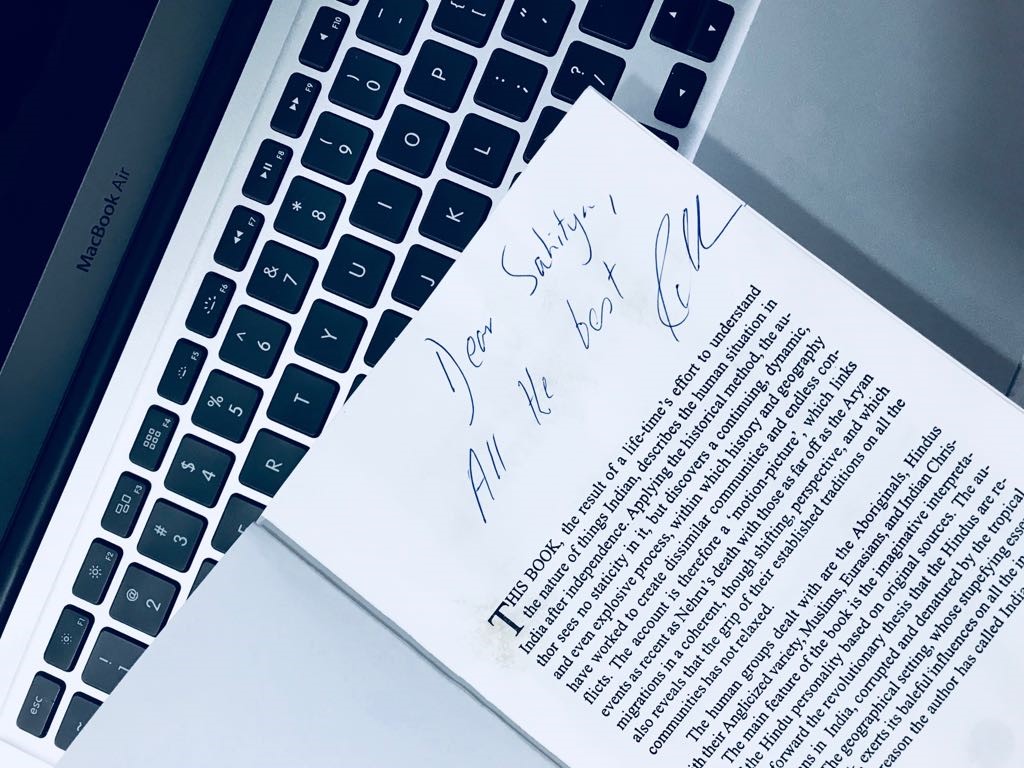 MacBook Air
esc F1 F2 F3 F4 F5 F6 F7 F8 F9 F10
~ ! @ 2 # 3 $ 4 % 5 ^ 6 & 7 * 8 ( 9 ) 0 _ -
R T Y U I O P { [
J K L : ; " '
? /
Dear Sahitya,
All the best
THIS BOOK, the result of a life-time's effort to understand
the nature of things Indian, describes the human situation in
India after independence. Applying the historical method, the au-
thor sees no staticity in it, but discovers a continuing, dynamic,
and even explosive process, within which history and geography
have worked to create dissimilar communities and endless con-
flicts. The account is therefore a 'motion-picture', which links
events as recent as Nehru's death with those as far off as the Aryan
migrations in a coherent, though shifting, perspective, and which
also reveals that the grip of their established traditions on all the
communities has not relaxed.
The human groups dealt with are the Aboriginals, Hindus
their Anglicized variety, Muslims, Eurasians, and Indian Chris-
The main feature of the book is the imaginative interpreta-
the Hindu personality based on original sources. The au-
forward the revolutionary thesis that the Hindus are re-
in India, corrupted and denatured by the tropical
geographical setting, whose stupefying
exerts its baleful influences on all the
reason the author has called